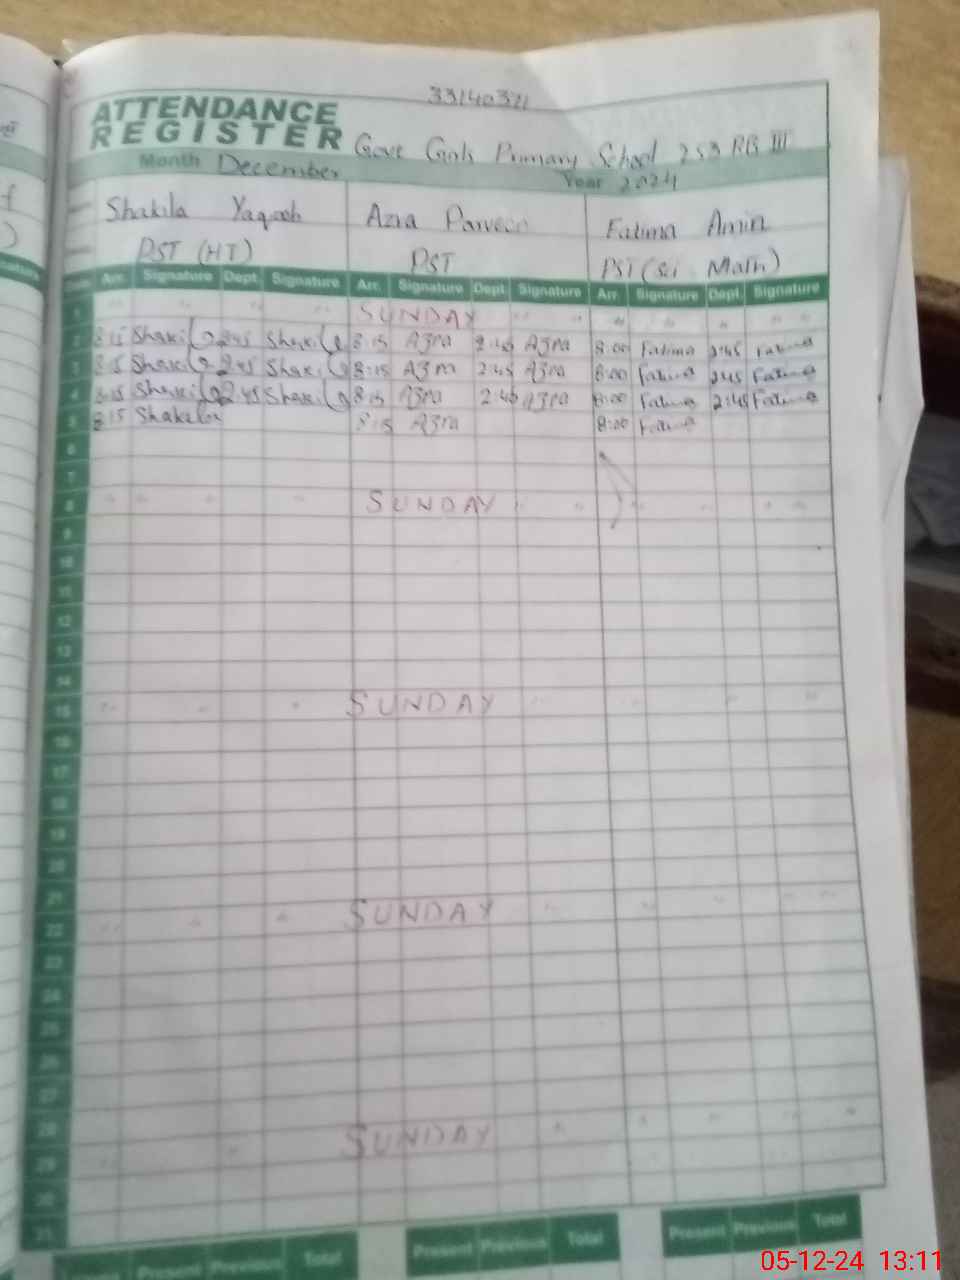 33140321
ATTENDANCE
REGISTER
Govt Girls Primary School 253 RB III
Month December Year 2024
Shakila Yaqoob Azra Parveen Fatima Amin
PST (HT) PST PST (Sci Math)
Arr. Signature Dept. Signature Arr. Signature Dept. Signature Arr. Signature Dept. Signature
1 SUNDAY
2 8:15 Shakila 2:45 Shakila 8:15 Azra 2:45 Azra 8:00 Fatima 2:45 Fatima
3 8:15 Shakila 2:45 Shakila 8:15 Azra 2:45 Azra 8:00 Fatima 2:45 Fatima
4 8:15 Shakila 2:45 Shakila 8:15 Azra 2:45 Azra 8:00 Fatima 2:45 Fatima
5 8:15 Shakila 8:15 Azra 8:00 Fatima
6
7
8 SUNDAY
9
10
11
12
13
14
15 SUNDAY
16
17
18
19
20
21
22 SUNDAY
23
24
25
26
27
28
29 SUNDAY
30
31
Present Previous Total Present Previous Total Present Previous Total
05-12-24 13:11